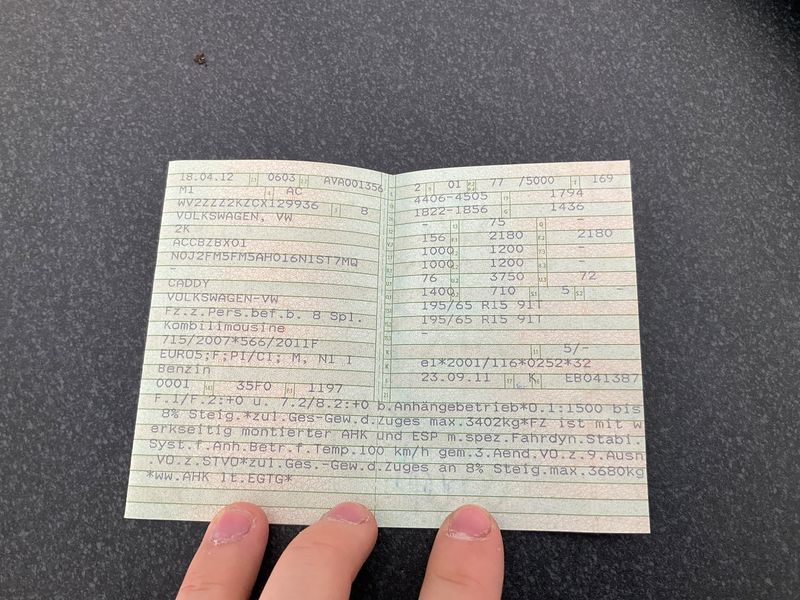 18.04.12 0603 AVA001356
M1 AC
WV2ZZZ2KZCX129936 8
VOLKSWAGEN, VW
2K
ACCBZBX01
N0J2FM5FM5AH016N1ST7MQ
-
CADDY
VOLKSWAGEN-VW
Fz.z.Pers.bef.b. 8 Spl.
Kombilimousine
715/2007*566/2011F
EURO5;F;PI/CI; M, N1 I
Benzin
0001 35F0 1197
2 01 77 /5000 169
4406-4505 1794
1822-1856 1436
- 75 -
156 2180 2180
1000 1200 -
1000 1200 -
76 3750 72
1400 710 5 -
195/65 R15 91T
195/65 R15 91T
-
5/-
e1*2001/116*0252*32
23.09.11 K EB041387
F.1/F.2:+0 u. 7.2/8.2:+0 b.Anhängebetrieb*O.1:1500 bis
8% Steig.*zul.Ges-Gew.d.Zuges max.3402kg*FZ ist mit w
erkseitig montierter AHK und ESP m.spez.Fahrdyn.Stabi.
Syst.f.Anh.Betr.f.Temp.100 km/h gem.3.Aend.VO.z.9.Ausn
.VO.z.STVO*zul.Ges.-Gew.d.Zuges an 8% Steig.max.3680kg
*ww.AHK lt.EGTG*